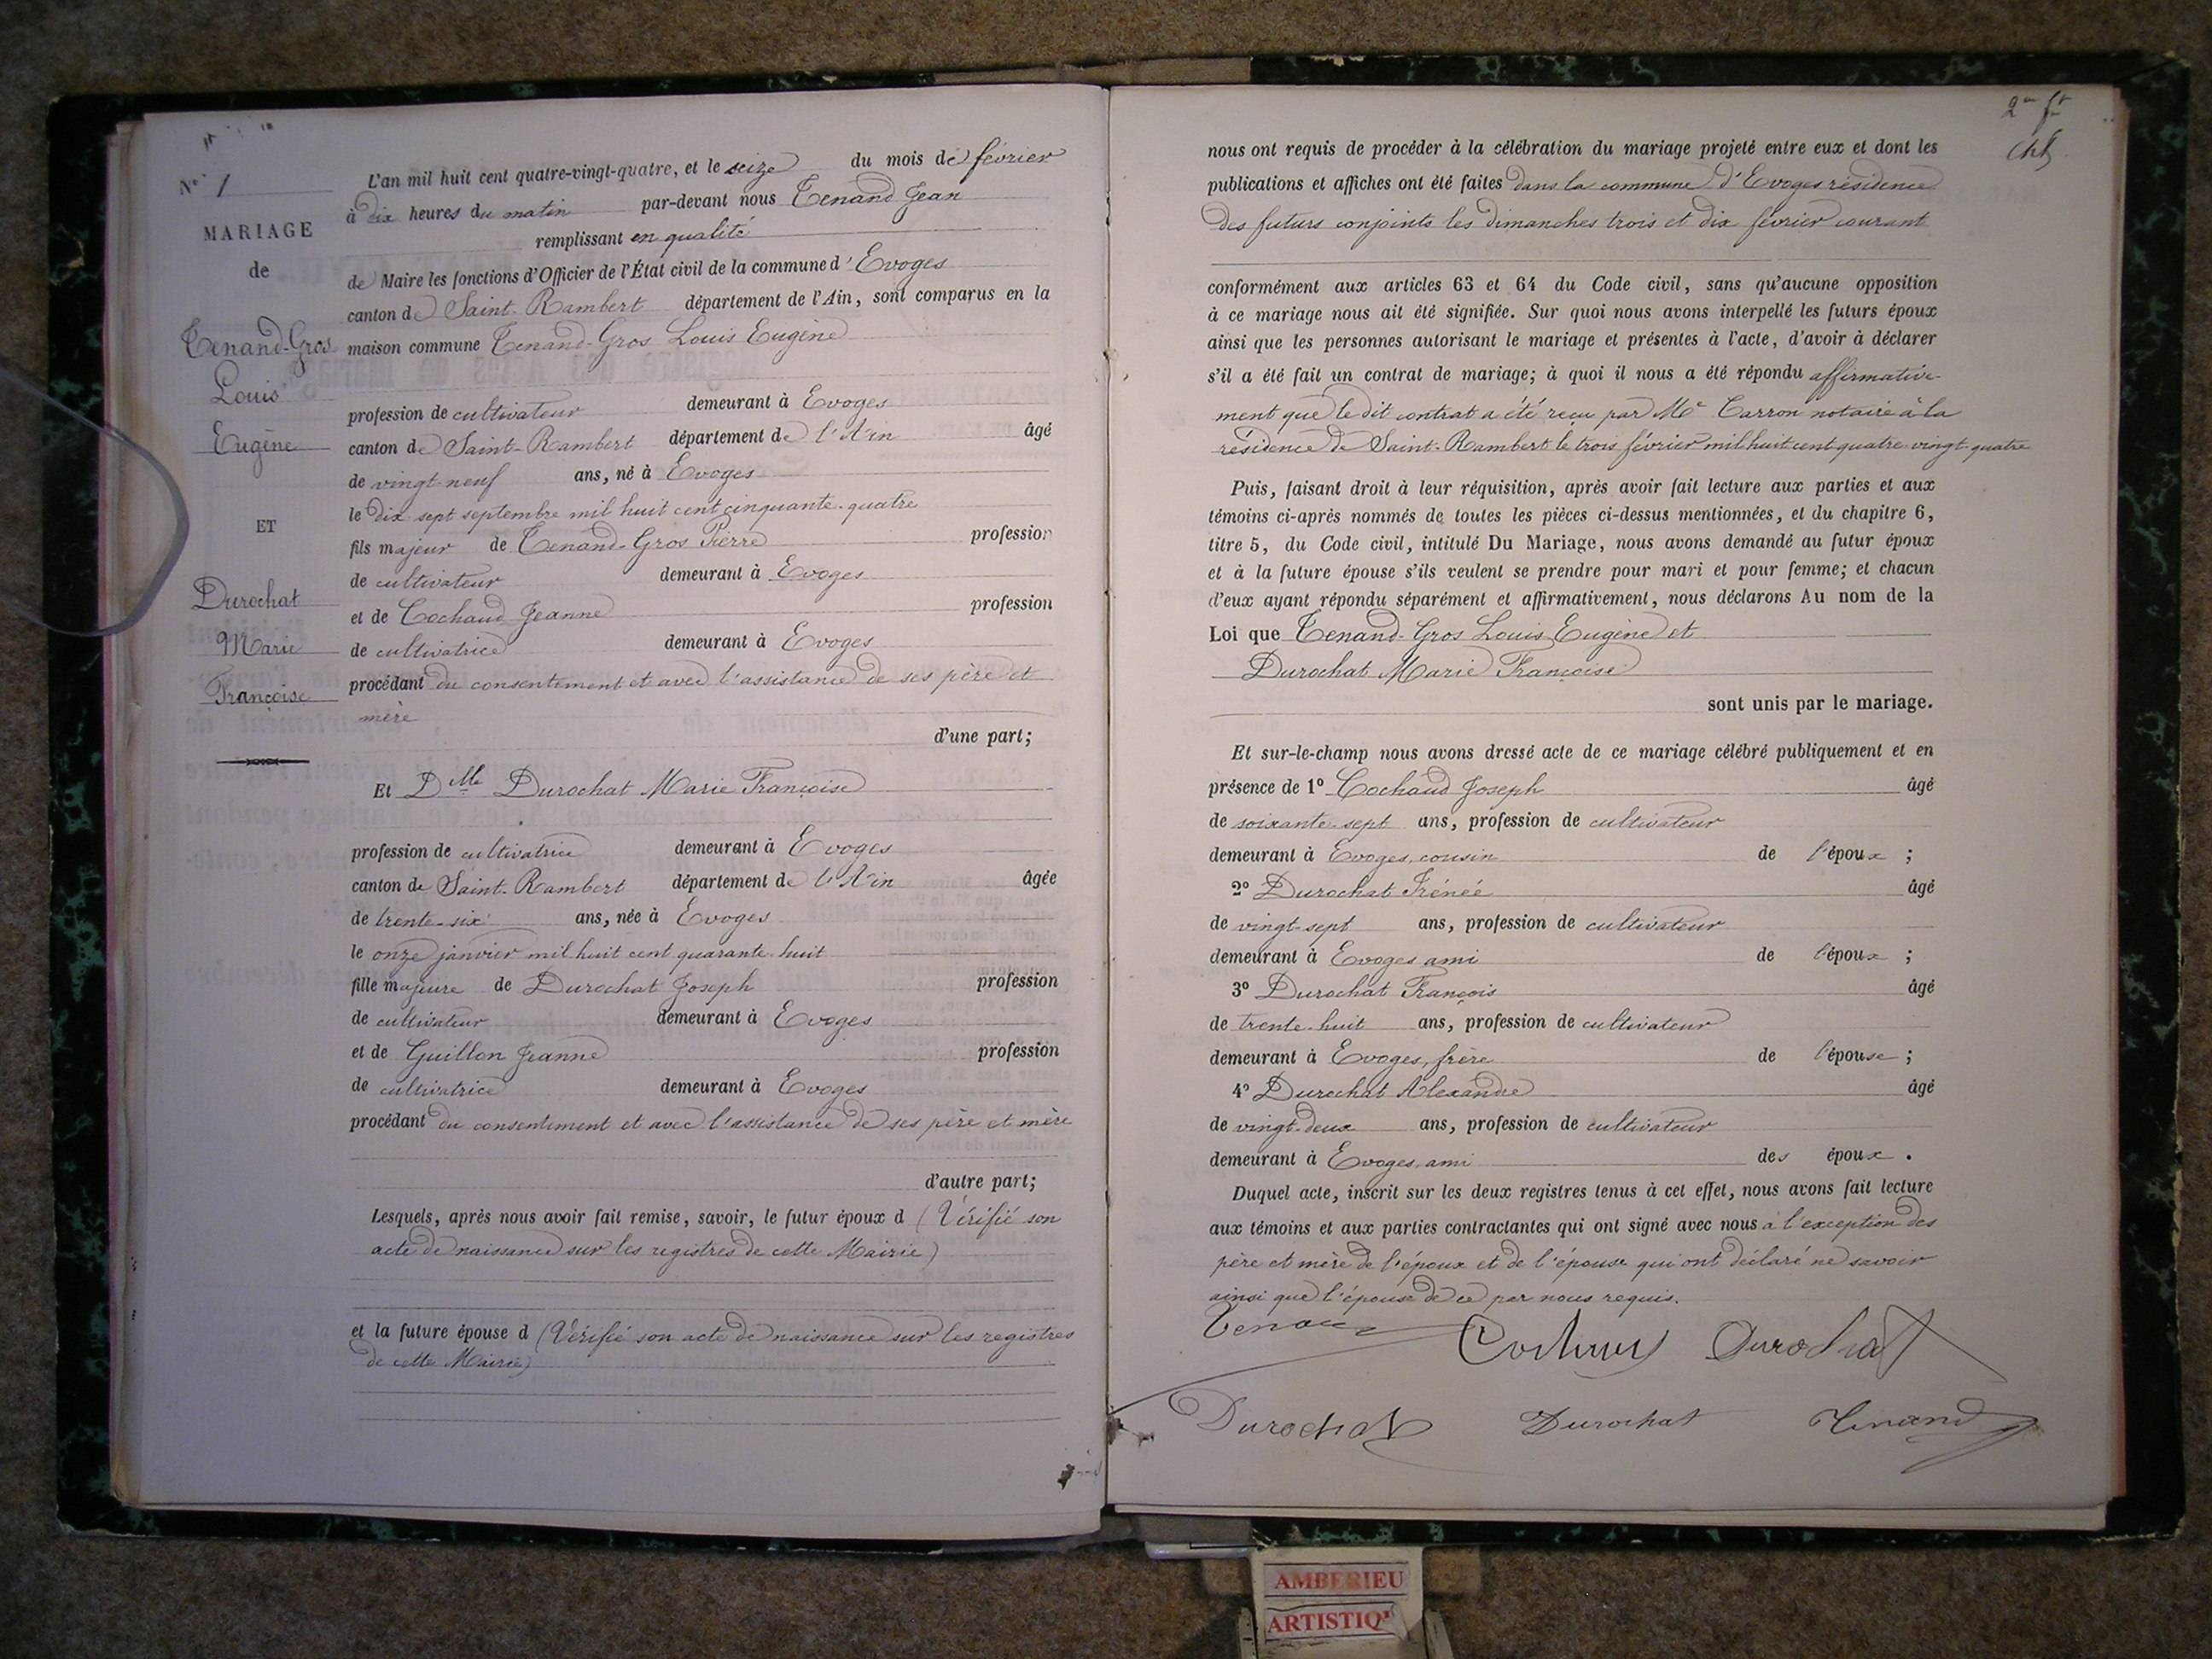 N° 1
MARIAGE
de
Tenand-Gros
Louis
Eugène
ET
Durochat
Marie
Françoise
L'an mil huit cent quatre-vingt-quatre, et le seize du mois de février
à dix heures du matin par-devant nous Tenand Jean
remplissant en qualité
de Maire les fonctions d'Officier de l'État civil de la commune d'Evoges
canton de Saint-Rambert département de l'Ain, sont comparus en la
maison commune Tenand-Gros Louis Eugène
profession de cultivateur demeurant à Evoges
canton de Saint-Rambert département de l'Ain âgé
de vingt-neuf ans, né à Evoges
le dix sept septembre mil huit cent cinquante-quatre
fils majeur de Tenand-Gros Pierre profession
de cultivateur demeurant à Evoges
et de Cochaud Jeanne profession
de cultivatrice demeurant à Evoges
procédant du consentement et avec l'assistance de ses père et
mère
d'une part;
Et Dlle Durochat Marie Françoise
profession de cultivatrice demeurant à Evoges
canton de Saint-Rambert département de l'Ain âgée
de trente-six ans, née à Evoges
le onze janvier mil huit cent quarante-huit
fille majeure de Durochat Joseph profession
de cultivateur demeurant à Evoges
et de Guillon Jeanne profession
de cultivatrice demeurant à Evoges
procédant du consentement et avec l'assistance de ses père et mère
d'autre part;
Lesquels, après nous avoir fait remise, savoir, le futur époux d (Vérifié son
acte de naissance sur les registres de cette Mairie)
et la future épouse d (Vérifié son acte de naissance sur les registres
de cette Mairie)
2me ft
nous ont requis de procéder à la célébration du mariage projeté entre eux et dont les
publications et affiches ont été faites dans la commune d'Evoges résidence
des futurs conjoints les dimanches trois et dix février courant
conformément aux articles 63 et 64 du Code civil, sans qu'aucune opposition
à ce mariage nous ait été signifiée. Sur quoi nous avons interpellé les futurs époux
ainsi que les personnes autorisant le mariage et présentes à l'acte, d'avoir à déclarer
s'il a été fait un contrat de mariage; à quoi il nous a été répondu affirmative-
ment que le dit contrat a été reçu par Me Carron notaire à la
résidence de Saint-Rambert le trois février mil huit cent quatre-vingt-quatre
Puis, faisant droit à leur réquisition, après avoir fait lecture aux parties et aux
témoins ci-après nommés de toutes les pièces ci-dessus mentionnées, et du chapitre 6,
titre 5, du Code civil, intitulé Du Mariage, nous avons demandé au futur époux
et à la future épouse s'ils veulent se prendre pour mari et pour femme; et chacun
d'eux ayant répondu séparément et affirmativement, nous déclarons Au nom de la
Loi que Tenand-Gros Louis Eugène et
Durochat Marie Françoise
sont unis par le mariage.
Et sur-le-champ nous avons dressé acte de ce mariage célébré publiquement et en
présence de 1° Cochaud Joseph âgé
de soixante-sept ans, profession de cultivateur
demeurant à Evoges, cousin de l'époux ;
2° Durochat Irénée âgé
de vingt-sept ans, profession de cultivateur
demeurant à Evoges ami de l'époux ;
3° Durochat François âgé
de trente-huit ans, profession de cultivateur
demeurant à Evoges, frère de l'épouse ;
4° Durochat Alexandre âgé
de vingt-deux ans, profession de cultivateur
demeurant à Evoges, ami des époux .
Duquel acte, inscrit sur les deux registres tenus à cet effet, nous avons fait lecture
aux témoins et aux parties contractantes qui ont signé avec nous à l'exception des
père et mère de l'époux et de l'épouse qui ont déclaré ne savoir
ainsi que l'épouse de ce par nous requis.
Durochat
Durochat Durochat Tenand
AMBERIEU
ARTISTIQ